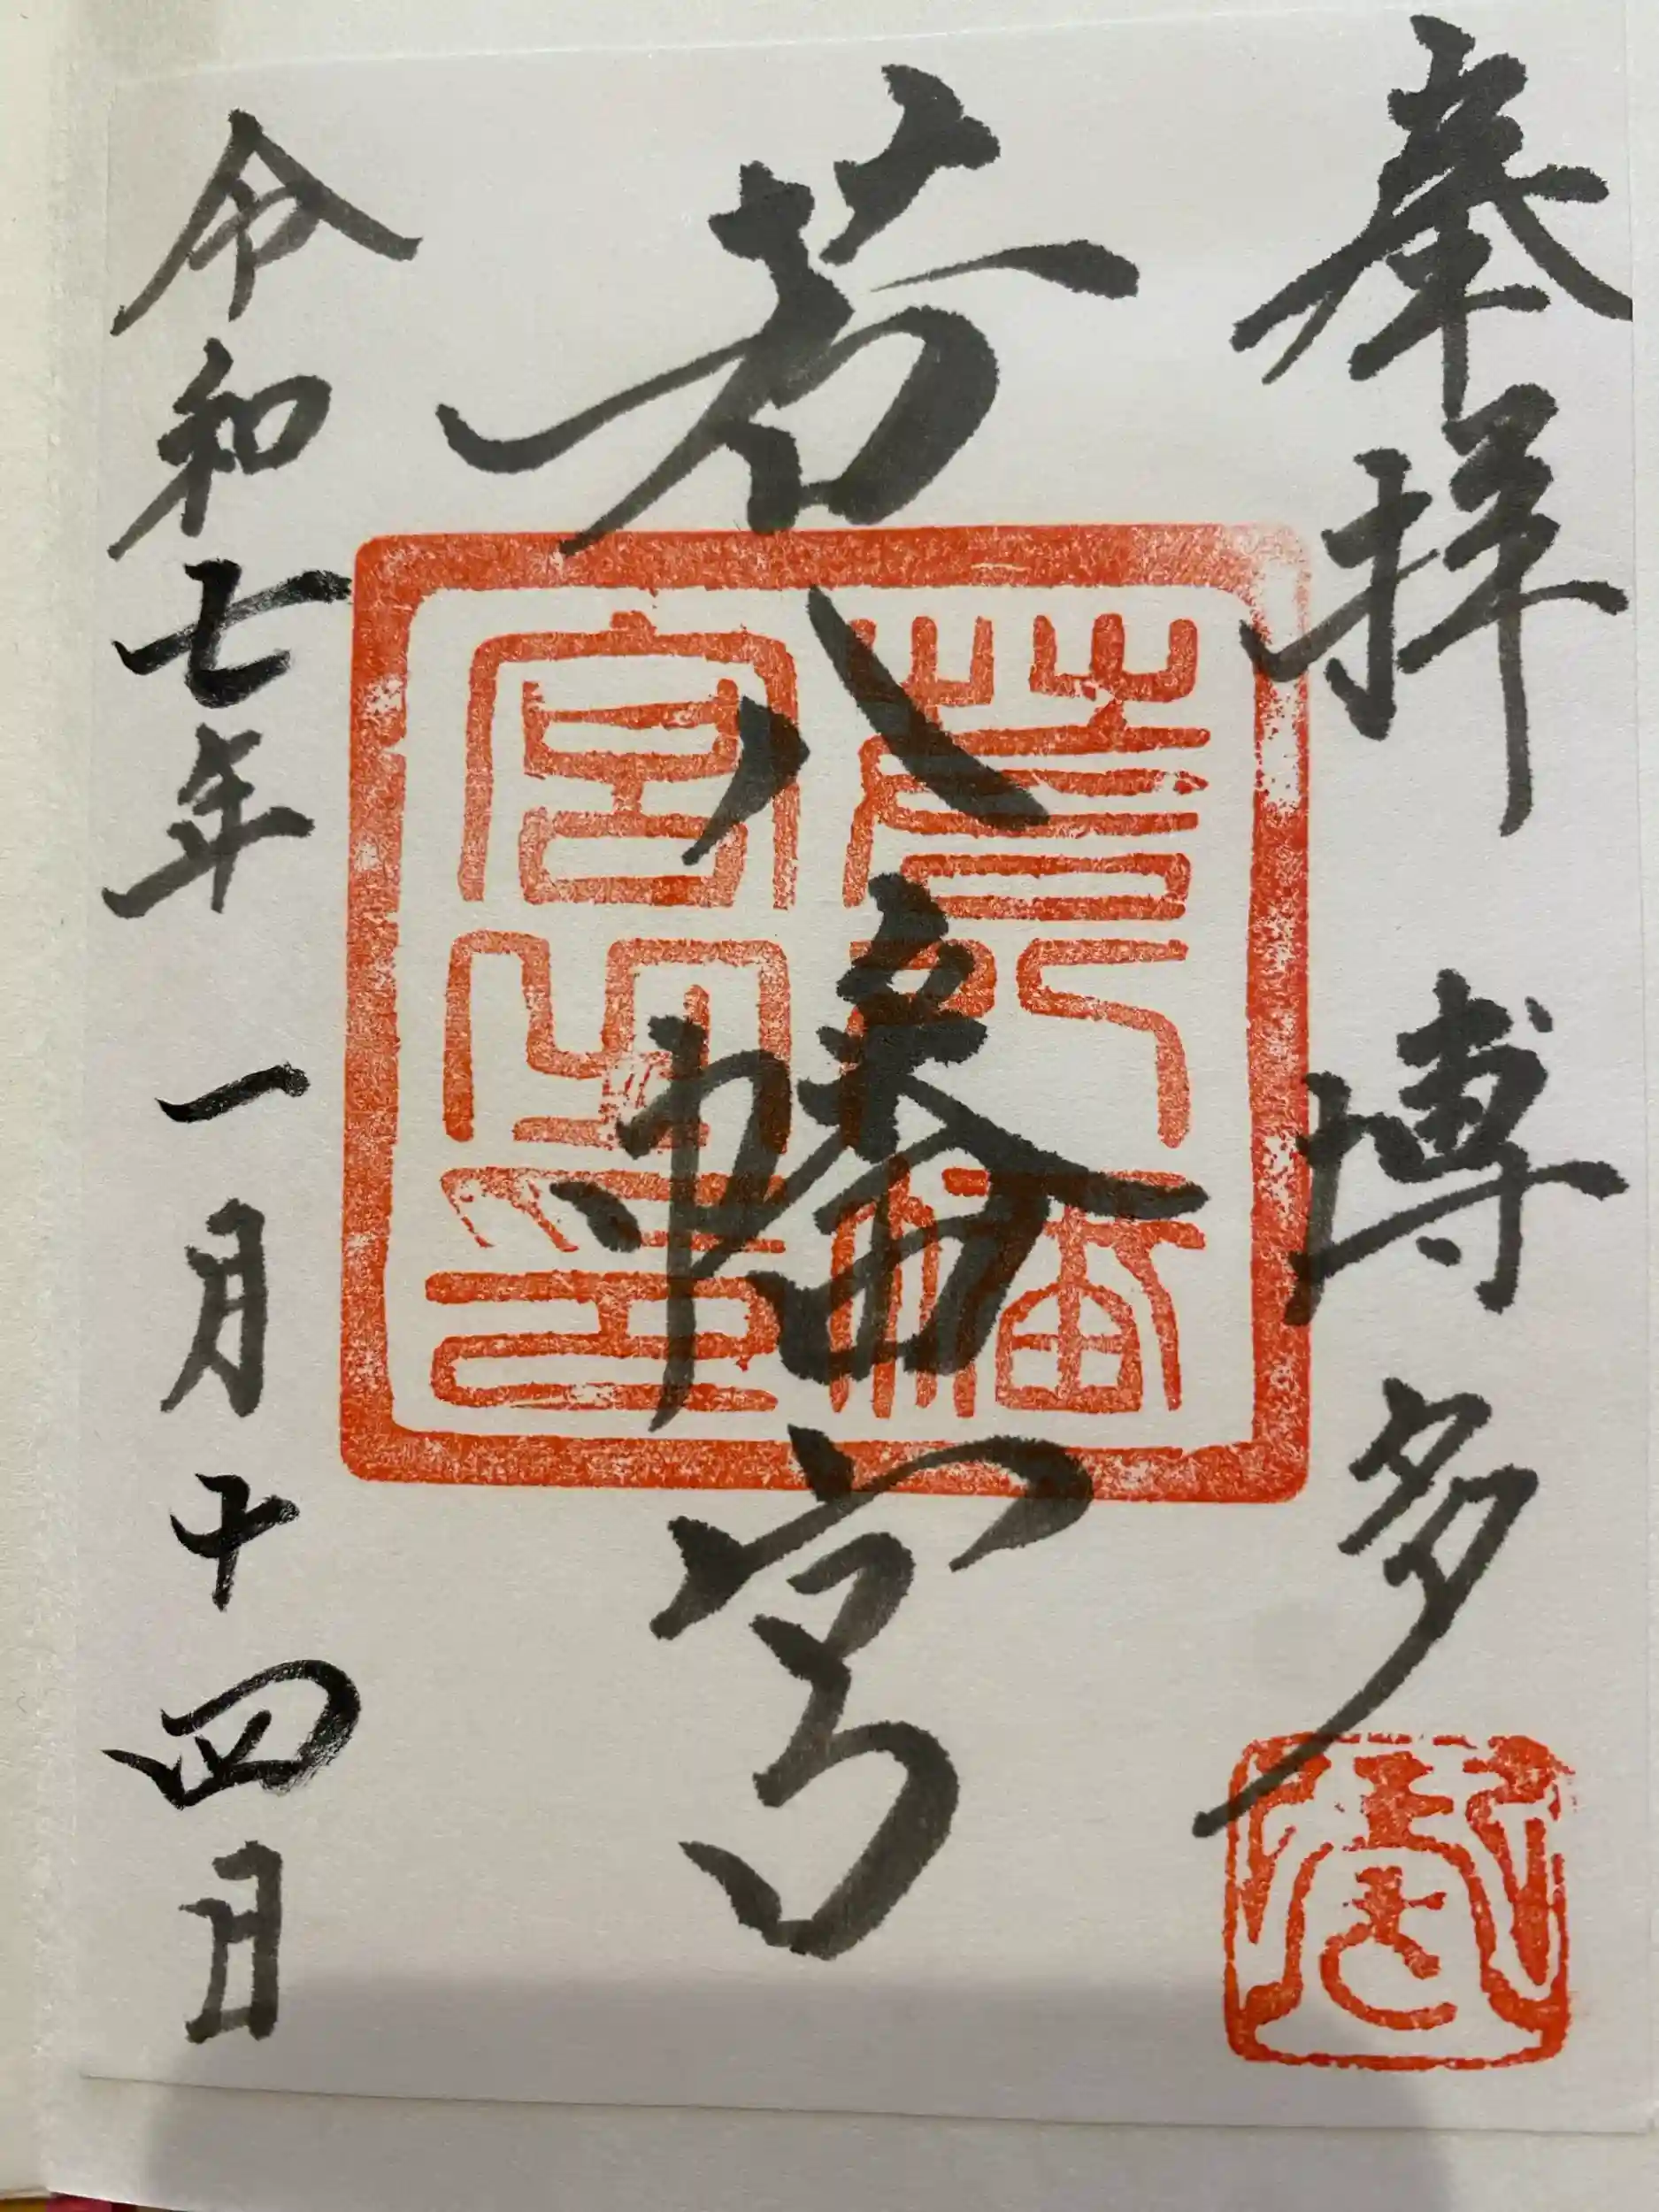 奉拝 博多
若八幡宮
若八幡
宮之印
令和七年一月十四日